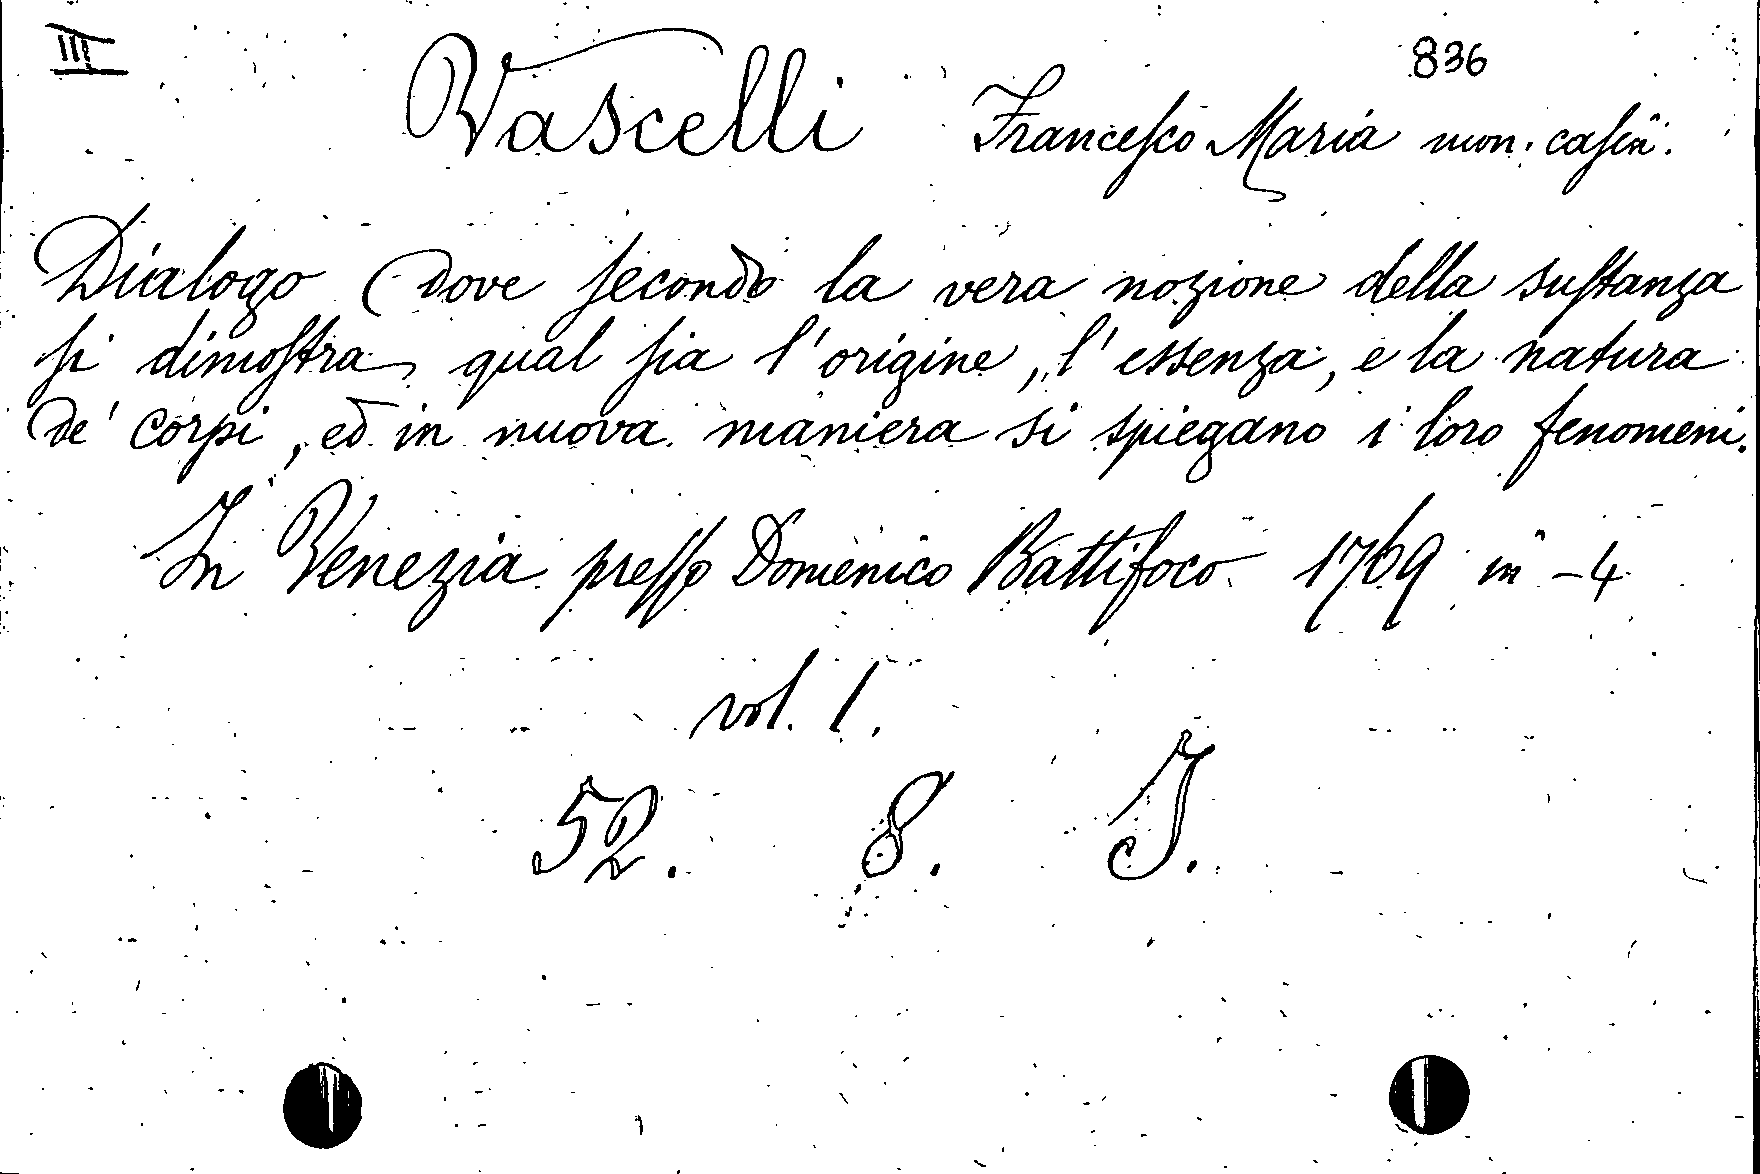 III 836
Vascelli Francesco Maria mon. casin.
Dialogo (dove secondo la vera nozione della sustanza
si dimostra qual sia l'origine, l'essenza, e la natura
de' corpi, ed in nuova maniera si spiegano i loro fenomeni.
In Venezia presso Domenico Battifoco 1769 in -4
vol. 1.
52. 8. J.